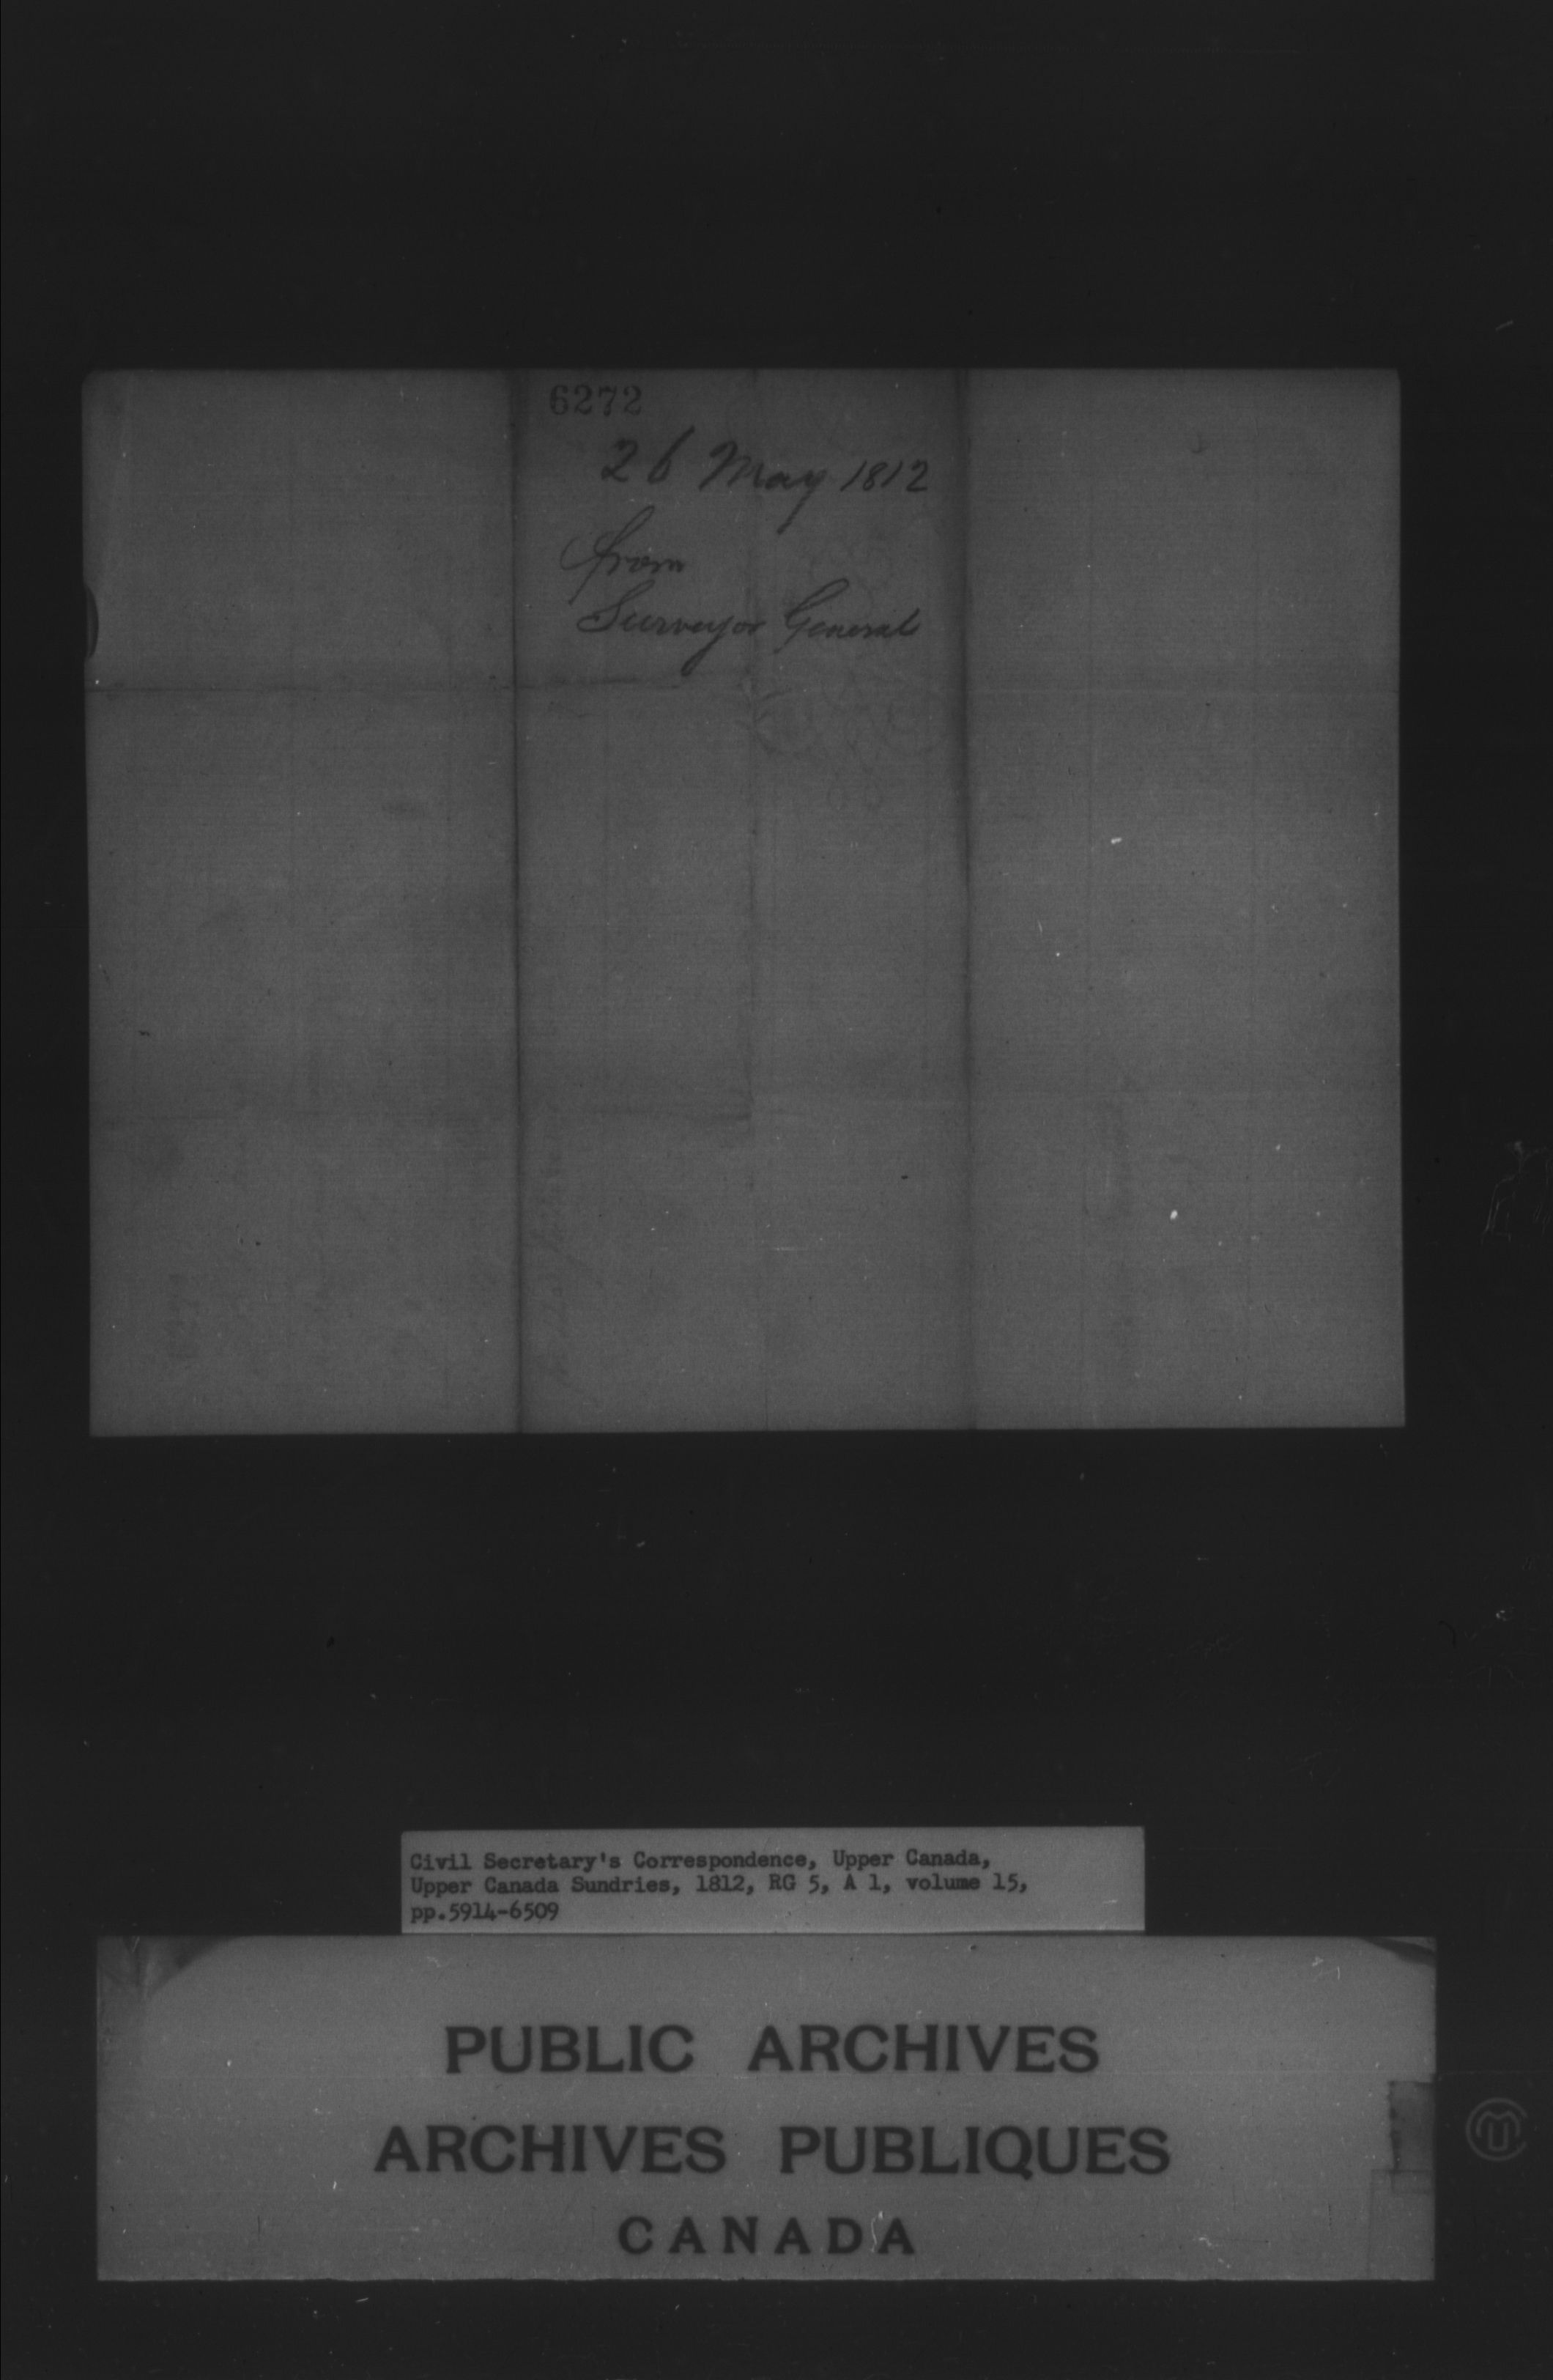 6272
26 May 1812
from
Surveyor General
Civil Secretary's Correspondence, Upper Canada,
Upper Canada Sundries, 1812, RG 5, A 1, volume 15,
pp.5914-6509
PUBLIC ARCHIVES
ARCHIVES PUBLIQUES
CANADA